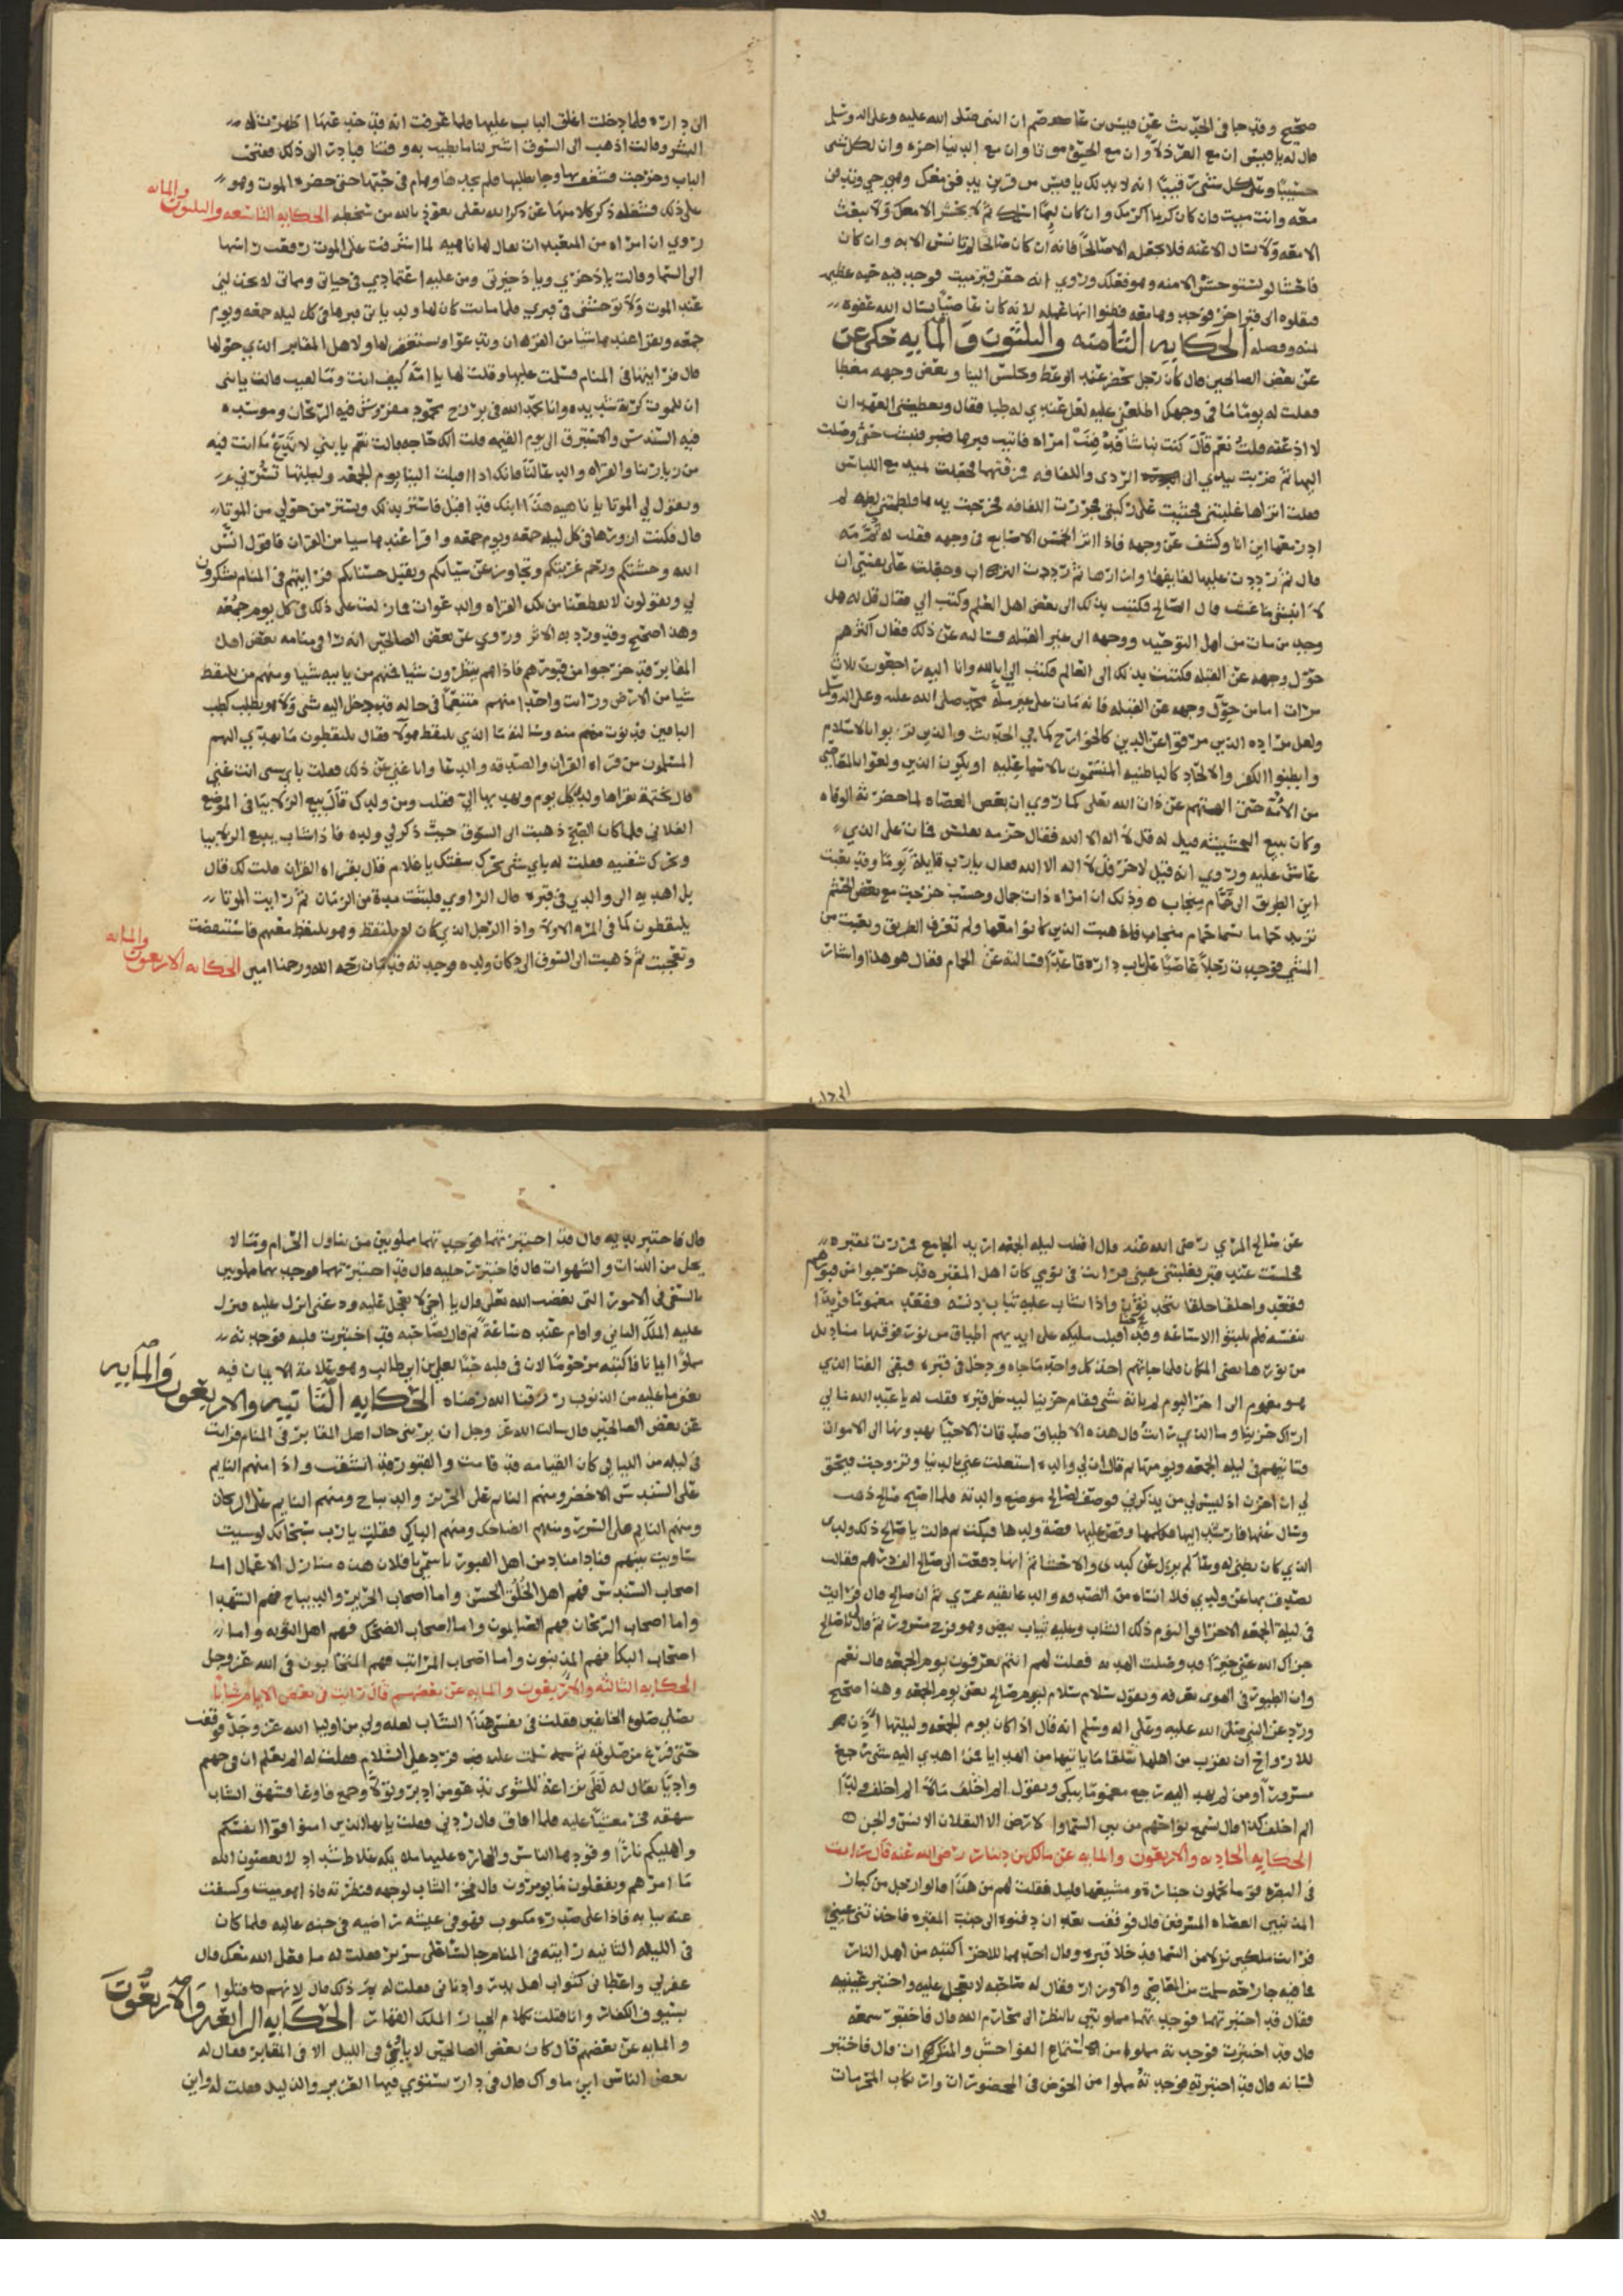 صحيح وقد جا في الحديث عن قيس بن عاصم ان النبي صلى الله عليه وعلى اله وسلم
قال له يا قيس ان مع العز ذلا وان مع الحيوة موتا وان مع الدنيا اخره وان لكل شي
حسيبا وعلى كل شي رقيبا انه لا بد لك يا قيس من قرين يدفن معك وهو حي وتدفن
معه وانت ميت فان كان كريما اكرمك وان كان ليما اسلمك ثم لا يحشر الا معك ولا تبعث
الا معه ولا تسال الا عنه فلا تجعله الا صالحا فانه ان كان صالحا لم تانس الا به وان كان
فاحشا لم تستوحش الا منه وهو فعلك وروي انه حفر قبر ميت فوجد فيه حيه عظيمه
فنقلوه الى قبر اخر فوجد وها معه فظنوا انها عمله لانه كان عاصيا نسال الله عفوه
بمنه وفضله الحكايه الثامنه والثلثون والمايه حكي عن
عن بعض الصالحين قال كان رجل يحضر عند الوعظ ويجلس الينا وبعض وجهه مغطا
فقلت له يوما ما في وجهك اطلعني عليه لعل عندي له طبا فقال وتعطيني العهد ان
لا اذعته قلت نعم قال كنت نباشا فدفنت امراه فاتيت قبرها فنبشت حتى وصلت
اليها ثم ضربت بيدي الى الردى واللفافه فجعلت تمد مع اللباس
فقلت اتراها غلبتني فجثيت على ركبتي فجررت اللفافه فخرجت يدها فلطمتني
وكشف عن وجهه فاذا اثر الخمس الاصابع في وجهه فقلت له ثم مه
قال ثم رددت عليها لفايفها وازارها ثم رددت التراب وجعلت على نفسي ان
لا انبش ما عشت قال الصالح فكتبت بذلك الى بعض اهل العلم وكتب الي فقال قل له هل
وجد من مات من اهل التوحيد ووجهه الى غير القبله فساله عن ذلك فقال اكثرهم
حول وجهه عن القبله فكتبت بذلك الى العالم فكتب الي انا لله وانا اليه راجعون ثلاث
مرات اما من حول وجهه عن القبله فانه مات على غير ملة محمد صلى الله عليه وعلى اله وسلم
ولعل مراده الذين مرقوا عن الدين كالخوارج كما في الحديث والذين تزيوا بالاسلام
وابطنوا الكفر والالحاد كالباطنيه
وكان يبيع الحشيشه قيل له قل لا اله الا الله فقال حزمه بفلس فمات على الذي
عاش عليه وروي انه قيل لاخر قل لا اله الا الله فقال يا رب قايلة يوما وقد تعبت
اين الطريق الى حمام منجاب وذلك ان امراه ذات جمال وحسن خرجت مع بعض الخدم
تريد حماما يسما حمام منجاب فلم تعرف الطريق وتعبت من
المشي فوجدت رجلا عاصيا على باب داره قاعدا فسالته عن الحمام فقال هو هذا واشار
الى داره
الى داره فلما دخلت اغلق الباب عليها فلما عرفت انه قد خدعها اظهرت له
البشر وقالت اذهب الى السوق اشتر لنا ما يطيب به وقتنا فبادر الى ذلك ففتحت
الباب وخرجت وجا يطلبها فلم يجدها وهام في حبها حتى حضره الموت وهو
على ذلك فشغله ذكر كلامها عن ذكر الله تعالى نعوذ بالله من سخطه الحكايه التاسعه والثلثون والمايه
روي ان امراه من المتعبدات يقال لها ناهيه لما اشرفت على الموت رفعت راسها
الى السما وقالت يا ذخري ويا ذخيرتي ومن عليه اعتمادي في حياتي ومماتي لا تخذلني
عند الموت ولا توحشني في قبري فلما ماتت كان لها ولد ياتي قبرها في كل ليله جمعه ويوم
جمعه ويقرا عندها شيا من القران ويدعوا ويستغفر لها ولاهل المقابر الذي حولها
قال فرايتها في المنام فسلمت عليها وقلت لها يا امه كيف انت وما لقيت قالت يا بني
ان للموت كربة شديده وانا بحمد الله في برزخ محمود مفروش فيه الريحان وموسد
فيه السندس والاستبرق الى يوم القيمه قلت الك حاجه قالت نعم يا بني لا تدع ما انت فيه
من زيارتنا والقراه والدعا لنا فانك اذا اقبلت الينا يوم الجمعه وليلتها تسرني
ويقول لي الموتا يا ناهيه هذا ابنك قد اقبل فاستر بذلك ويستر من حولي من الموتا
قال فكنت ازورها في كل ليله جمعه ويوم جمعه واقرا عندها شيا من القران فاقول انس
الله وحشتكم ورحم غربتكم وتجاوز عن سياتكم وتقبل حسناتكم فرايتهم في المنام يشكرون
لي ويقولون لا تقطعنا من تلك القراه والدعوات فما زلت على ذلك في كل يوم جمعه
وهذا صحيح وقد ورد به الاثر وروي عن بعض الصالحين انه را في منامه بعض اهل
المقابر قد خرجوا من قبورهم فاذا هم ينتظرون شيا فمنهم من ياتيه شيا ومنهم من يلتقط
شيا من الارض ورايت واحدا منهم متنعما في حاله قد دخل اليه شي ولا هو يطلب كطلب
الباقين فدنوت منه وسالته ما الذي يلتقط هولا فقال يلتقطون ما يهدي اليهم
المسلمون من قراه القران والصدقه والدعا وانا غني عن ذلك فقلت باي شي انت غني
قال بختمة يقراها ولدي كل يوم ويهديها الي فقلت ومن ولدك قال يبيع الزلابيا في الموضع
الفلاني فلما كان الصبح ذهبت الى السوق حيث ذكر لي ولده فاذا شاب يبيع الزلابيا
ويحرك شفتيه فقلت له باي شي تحرك شفتك يا غلام قال بقراه القران قلت لك قال
بل اهديه الى والدي في قبره قال الراوي فلبثت مدة من الزمان ثم رايت الموتا
يلتقطون كما في المره الاوله واذا الرجل الذي كان لا يلتقط وهو يلتقط معهم فاستيقضت
وتعجبت ثم ذهبت الى السوق الى دكان ولده فوجدته قد مات رحمه الله ورحمنا امين الحكايه الاربعون والمايه
عن صالح المري رضى الله عنه قال اقبلت ليله الجمعه اريد الجامع فمررت بمقبره
فجلست عند قبر فغلبتني عيني فرايت في نومي كان اهل المقبره قد خرجوا من قبورهم
فقعدوا حلقا حلقا يتحدثون واذا شاب عليه ثياب دنسه فقعد مغموما فريدا
بنفسه فلم يلبثوا الا ساعه وقد اقبلت مليكه على ايديهم اطباق من نور فوقها مناديل
من نور فلما جاتهم اخذ كل واحد ما جاه ودخل في قبره فبقى الفتا الذي
هو مغموم الى اخر القوم لم ياته شي فقام حزينا ليدخل قبره فقلت له يا عبد الله ما لي
اراك حزينا وما الذي رايت قال هذه الاطباق صدقات الاحيا يهدونها الى الاموات
فتاتيهم في ليله الجمعه ويومها ثم قال ان لي والده اشتغلت عني بالدنيا وتزوجت فيحق
لي ان احزن اذ ليس لي من يذكرني فوصف لصالح موضع والدته فلما اصبح صالح ذهب
وسال عنها فارشد اليها فكلمها وقص عليها قصة ولدها فبكت ثم قالت يا صالح ذلك ولدي
الذي كان بطني له وعا ثم انها دفعت الى صالح الف درهم فقالت
تصدق بها عن ولدي فلا انساه من الصدقه والدعا بقيه عمري ثم ان صالح قال فرايت
في ليلة الجمعه الاخرا في النوم ذلك الشاب وعليه ثياب بيض وهو فرح مسرور ثم قال لي يا صالح
جزاك الله عني خيرا قد وصلت الهديه فقلت لهم انتم تعرفون يوم الجمعه قال نعم
وان الطيور في الهوى تعرفه وتقول سلام سلام ليوم صالح يعني يوم الجمعه وهذا صحيح
ورد عن النبي صلى الله عليه وعلى اله وسلم انه قال اذا كان يوم الجمعه وليلتها اذن
للارواح ان تقرب من اهلها تتلقا ما ياتيها من الهدايا فمن اهدي اليه شي رجع
مسرورا ومن لم يهد اليه رجع مغموما يبكي ويقول الم اخلف مالا الم اخلف ولدا
الم اخلف كذا قال يسمع نواحهم من بين السماوا لارض الا الثقلان الانس والجن
الحكايه الحاديه والاربعون والمايه عن مالك بن دينار رضى الله عنه قال رايت
في البصره قوما يحملون جنازة ومشيعها قليل فقلت لهم من هذا قالوا رجل من كبار
المذنبين العصاه المسرفين قال فوقفت بعد ان دفنوه الى جنب المقبره فاخذتني عيني
فرايت ملكين نزلا من السما فدخلا قبره وقال احدهما للاخر اكتبه من اهل النار
فما فيه جارحه سلمت من المعاصي والاوزار فقال له صاحبه لا تعجل عليه واختبر عينيه
فقال قد اختبرتهما فوجدتهما مملوءتين بالنظر الى محارم الله قال فاختبر سمعه
قال قد اختبرت فوجدته مملوءا من استماع الفواحش والمنكرات قال فاختبر
لسانه قال قد اختبرته فوجدته مملوا من الخوض في المحضورات وارتكاب المحرمات
قال
قال فاختبر يديه قال قد اختبرتهما فوجدتهما مملوتين من تناول الحرام وما لا
يحل من اللذات والشهوات قال فاختبر رجليه قال قد اختبرتهما فوجدتهما مملوتين
بالسعي في الامور التي تغضب الله تعالى قال يا اخي لا تعجل عليه ودعني انزل عليه فنزل
عليه الملك الثاني واقام عنده ساعة ثم قال لصاحبه قد اختبرت قلبه فوجدته
مملوا ايمانا فاكتبه مرحوما لان في قلبه حبا لعلي بن ابي طالب وهو علامة الايمان فيه
يغفر ما عليه من الذنوب رزقنا الله رضاه الحكايه الثانيه والاربعون والمايه
عن بعض الصالحين قال سالت الله عز وجل ان يريني حال اهل المقابر في المنام فرايت
في ليله من الليالي كان القيامه قد قامت والقبور قد انشقت واذا منهم النايم
على السندس الاخضر ومنهم النايم على الحرير والديباج ومنهم النايم على الريحان
ومنهم النايم على السرر ومنهم الضاحك ومنهم الباكي فقلت يا رب سبحانك لو سيت
ساويت بينهم فنادا مناد من اهل القبور باسمي يا فلان هذه منازل الاعمال اما
اصحاب السندس فهم اهل الخلق الحسن واما اصحاب الحرير والديباج فهم الشهدا
واما اصحاب الريحان فهم الصايمون واما اصحاب الضحك فهم اهل التوبه واما
اصحاب البكا فهم المذنبون واما اصحاب المراتب فهم المتحابون في الله عز وجل
الحكايه الثالثه والاربعون والمايه عن بعضهم قال رايت في بعض الايام شابا
يصلي صلوة الخايفين فقلت في نفسي هذا الشاب لعله ولي من اوليا الله عز وجل فوقفت
حتى فرغ من صلوته ثم سلمت عليه فرد علي السلام فقلت له الم تعلم ان في جهنم
واديا يقال له لظى نزاعة للشوى تدعو من ادبر وتولى وجمع فاوعا فشهق الشاب
شهقه فخر مغشيا عليه فلما افاق قال زدني فقلت يايها الذين امنوا قوا انفسكم
واهليكم نارا وقودها الناس والحجاره عليها مليكه غلاظ شداد لا يعصون الله
ما امرهم ويفعلون ما يومرون قال فخر الشاب لوجهه فنظرته فاذا هو ميت وكشفت
عنه ثيابه فاذا على صدره مكتوب فهو في عيشه راضيه في جنه عاليه فلما كان
في الليله الثانيه رايته في المنام جالسا على سرير فقلت له ما فعل الله بك قال
غفر لي واعطاني كثواب اهل بدر وزادني فقلت له لم ذلك قال لانهم قتلوا
بسيوف الكفار وانا قتلت بكلام الجبار الملك القهار الحكايه الرابعه والاربعون
والمايه عن بعضهم قال كان بعض الصالحين لا ياتي في الليل الا في المقابر فقال له
بعض الناس اين ماواك قال في دار يستوي فيها العزيز والذليل فقلت له واين